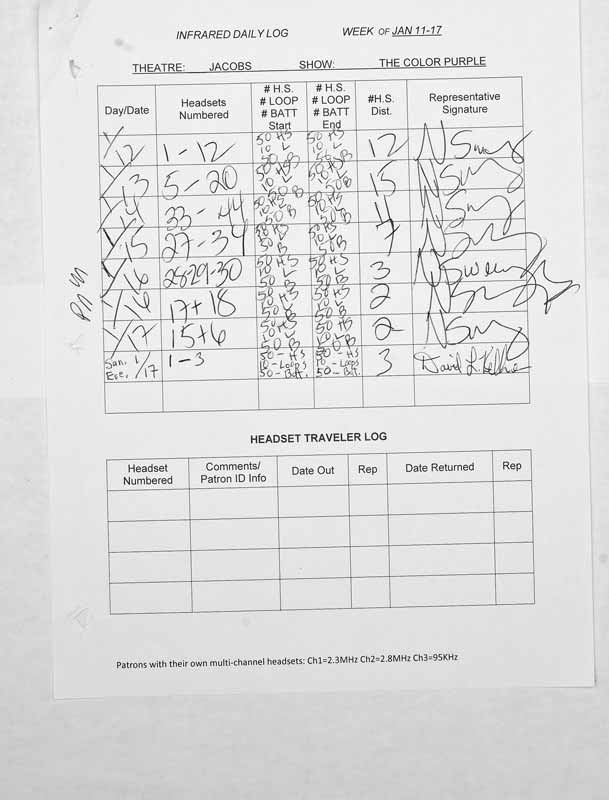 INFRARED DAILY LOG WEEK OF JAN 11-17
THEATRE: JACOBS SHOW: THE COLOR PURPLE
Day/Date Headsets Numbered # H.S. # LOOP # BATT Start # H.S. # LOOP # BATT End #H.S. Dist. Representative Signature
1/12 1-12 50 HS 10 L 50 B 50 HS 10 L 50 B 12
1/13 5-20 50 HS 10 L 50 B 50 HS 10 L 50 B 15
1/14 33-44 50 HS 10 L 50 B 50 HS 10 L 50 B
1/15 27-34 50 HS 10 L 50 B 50 HS 10 L 50 B 7
1/16 50 HS 10 L 50 B 50 HS 10 L 50 B 3
PM 1/16 17+18 50 HS 10 L 50 B 50 HS 10 L 50 B 2
1/17 15+6 50 HS 10 L 50 B 50 HS 10 L 50 B 2
Sun. Eve. 1/17 1-3 50-HS 10-Loops 50-Batt. 50-HS 10-Loops 50-Bat. 3 David L.
HEADSET TRAVELER LOG
Headset Numbered Comments/ Patron ID Info Date Out Rep Date Returned Rep
Patrons with their own multi-channel headsets: Ch1=2.3MHz Ch2=2.8MHz Ch3=95KHz